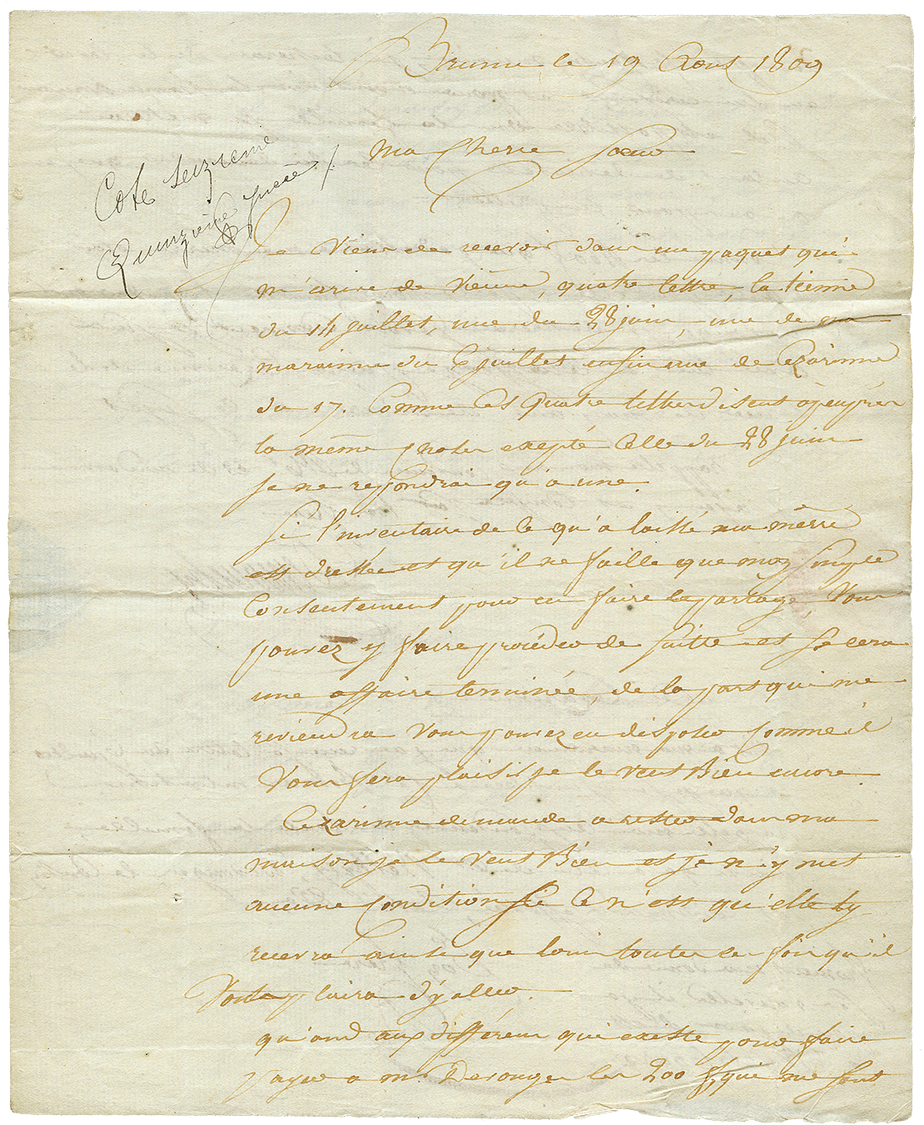 Brunn le 19 Aout 1809
Ma Chere Soeur
Cote seizieme
Quinzieme piece /.
Je Viens de recevoir dans un paquet qui
m'arive de Vienne, quatre lettre, la tienne
du 14 juillet, une du 28 juin, une de ma
maraine du 6 juillet enfin une de Cezarinne
du 17. Comme Ces Quatre lettre disent àpeuprés
la même chose exepté Celle du 28 juin
je ne repondrai qu'a une.
Si l'inventaire de Ce qu'a laissé ma mêrre
est dressée et qu'il ne faille que mon simple
Consentement pour en faire le partage, Vous
pouvez y faire proceder de suitte et se cera
une affaire terminée, de la part qui me
reviendra Vous pouvez en disposer comme il
Vous fera plaisir je le Veut Bien encore
Cezarinne demande a rester dans ma
maison je le Veut Bien et je n'y met
aucune Condition Si Ce n'est qu'elle ty
recevra ainsi que louis toutes les fois qu'il
Vous plaira d'y aller.
qu'and aux différens qui existe pour faire
payer a m. Deronger les 200 f qui me sont